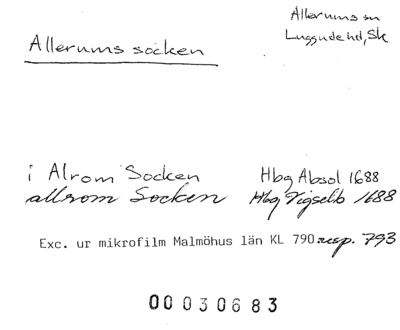 Allerums socken
Allerums sn
Luggude hd, Sk
i Alrom Socken Hbg Absol 1688
allrom Socken Hbg Vigselb 1688
Exc. ur mikrofilm Malmöhus län KL 790 resp. 793
00030683